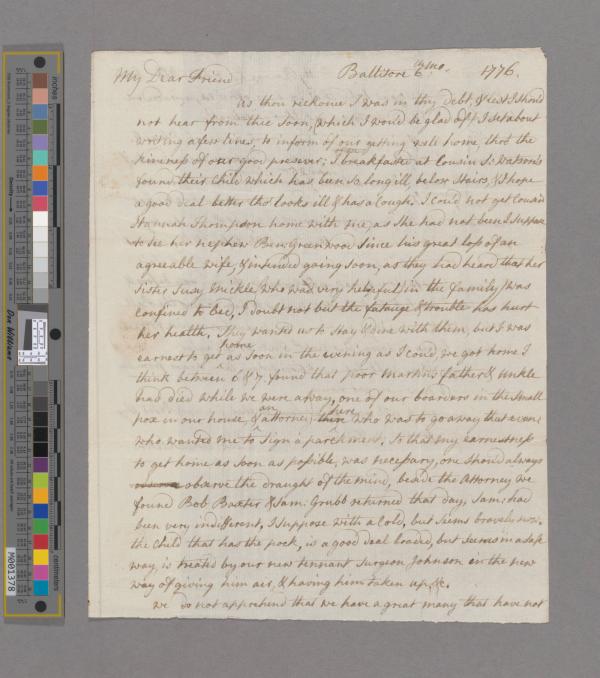 My Dear Friend Ballitore 6th mo. 1776.
As thou reckons I was in thy debt, & lest I should
not hear from thee soon, which I would be glad off, I set about
writing a few lines, to inform of our getting well home, thro' the
kindness of our good preserver; I breakfasted at Cousin S: Watsons
found their Child which has been so long ill below Stairs, & I hope
a good deal better tho' looks ill & has a Cough. I could not get Cousin
Hannah Thompson home with me, as she had not been I suppose
to see her nephew Ben: Greenwood Since his great loss of an
agreeable wife, & intended going soon, as they had heard that her
Sister Susy Mickle, who was very helpful in the family, was
confined to bed, I doubt not but the fatauge & trouble has hurt
her health. They wanted us to stay & dine with them, but I was
home
earnest to get as soon in the evening as I could, we got home I
think between 6 & 7. found that poor Markins father & unkle
had died while we were away, one of our boarders in the small
an here
pox in our house, & attorney there who was to go away that evening
who wanted me to sign a parchment, So that my earnestness
to get home as soon as possible, was necessary, one should always
observe the draught of the mind, beside the Attorney we
found Bob Baxter & Sam: Grubb returned that day, Sam: had
been very indifferent, I suppose with a Cold, but seems bravely now.
the Child that has the pock, is a good deal loaded, but seems in a safe
way, is treated by our new tennant Surgeon Johnson in the new
way of giving him air, & having him taken up, &c.
we do not apprehend that we have a great many that have not
inches
centimeters
Don Williams
M001378